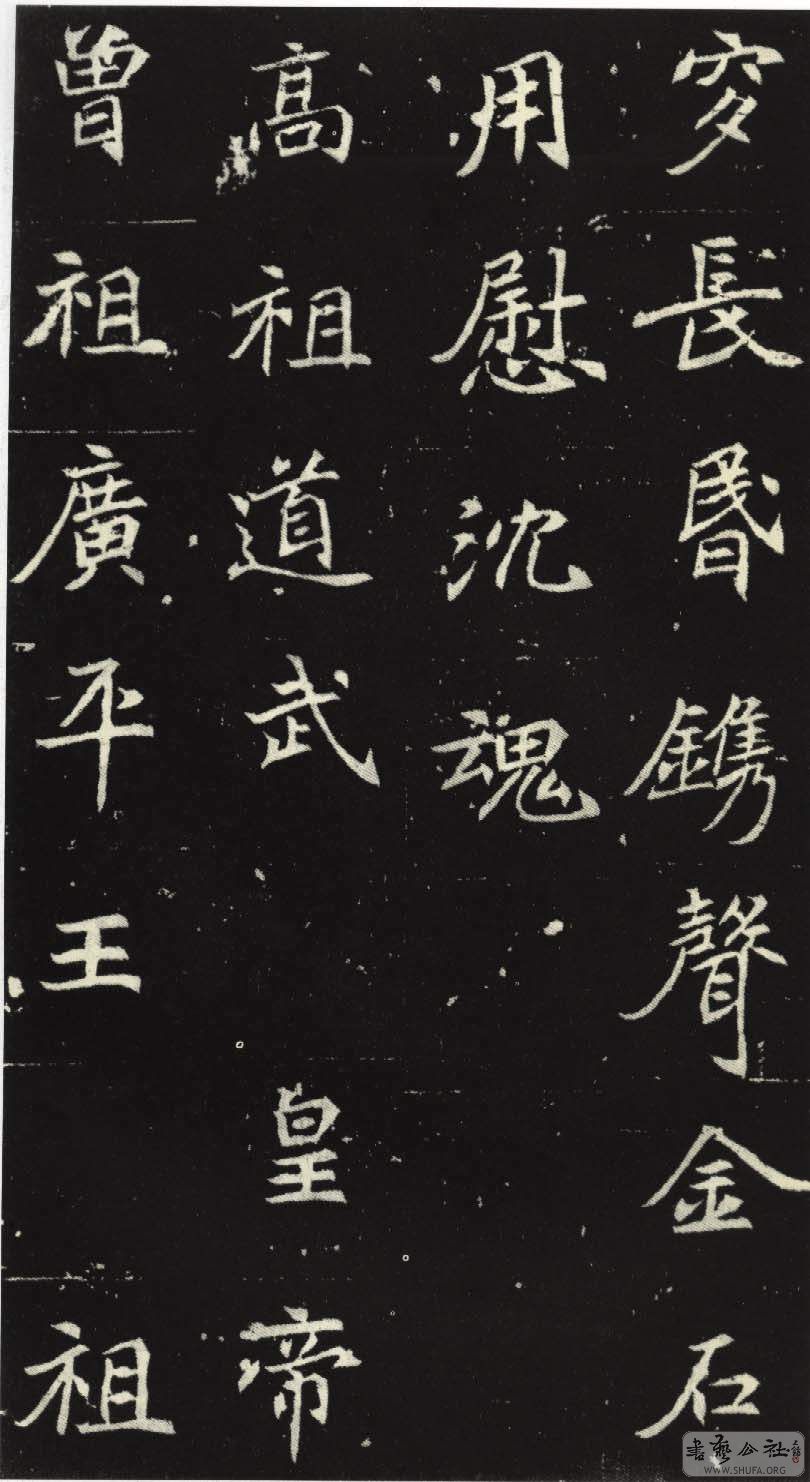 穸長昬鐫聲金石
用慰沈魂
高祖道武皇帝
曾祖廣平王祖
書藝公社
WWW.SHUFA.ORG